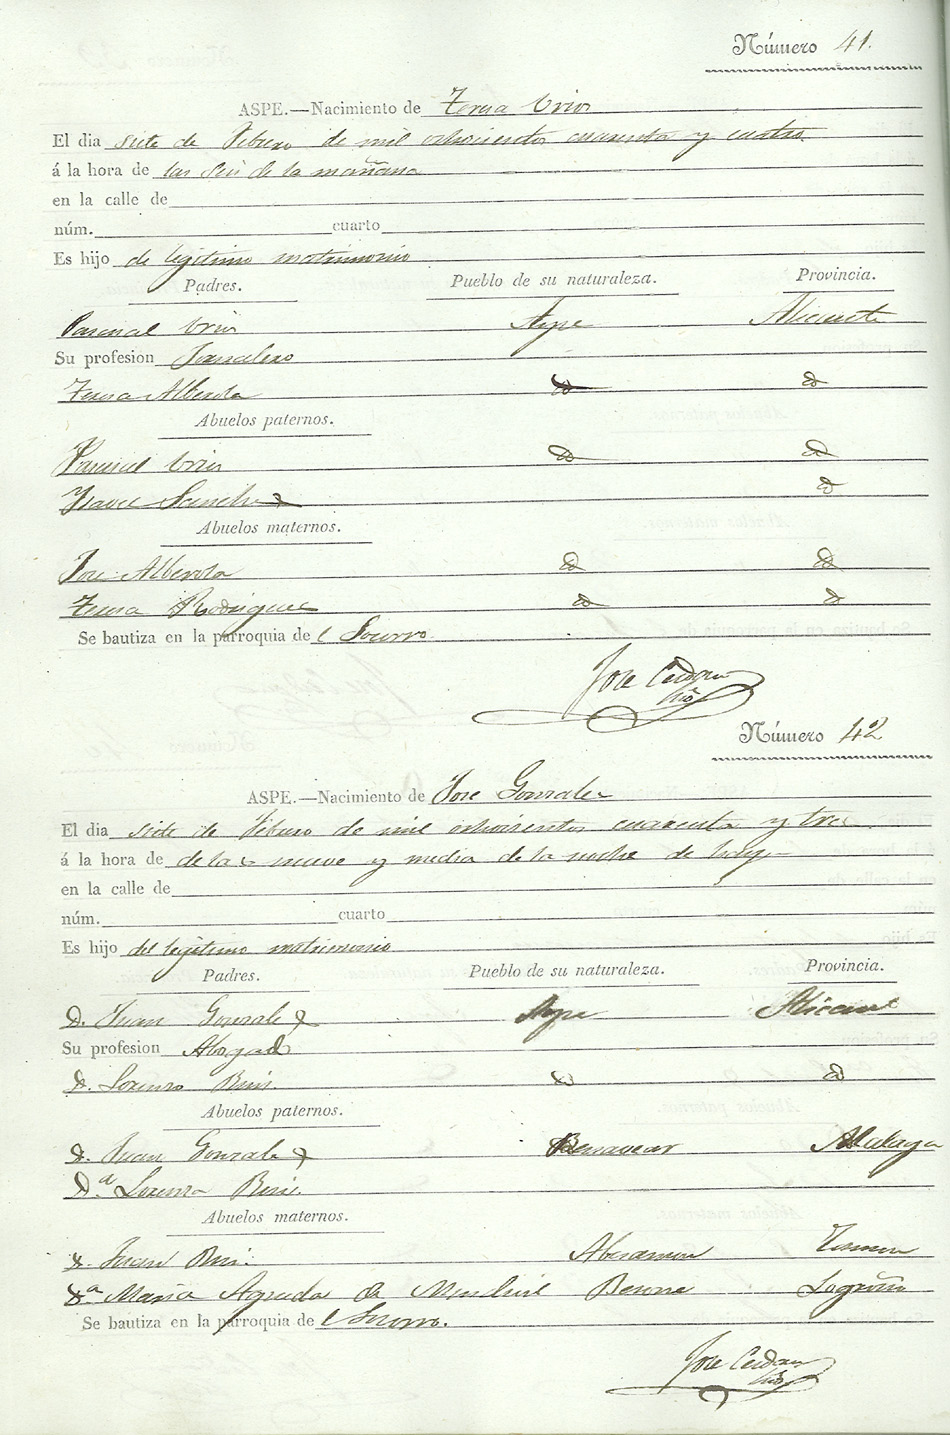 Número 41.
ASPE.—Nacimiento de Teresa Urios
El dia siete de Febrero de mil ochocientos cuarenta y cuatro
á la hora de las seis de la mañana
en la calle de
núm. cuarto
Es hijo de legitimo matrimonio
Padres. Pueblo de su naturaleza. Provincia.
Pascual Urios Aspe Alicante
Su profesion Jornalero
Teresa Alberola id id
Abuelos paternos.
Pascual Urios id id
Sanchez id
Abuelos maternos.
Jose Alberola id id
Teresa Rodriguez id id
Se bautiza en la parroquia de l Socorro
Jose Cerdan
Número 42
ASPE.—Nacimiento de Jose Gonzalez
El dia siete de Febrero de mil ochocientos cuarenta y tres
á la hora de de las nueve y media de la noche de hoy
en la calle de
núm. cuarto
Es hijo del legitimo matrimonio
Padres. Pueblo de su naturaleza. Provincia.
D. Juan Gonzalez Aspe Alicante
Su profesion Abogado
D. Lorenzo Ruiz id id
Abuelos paternos.
D. Juan Gonzalez Malaga
D.a Lorenza
Abuelos maternos.
D. Juan
D.a Maria Agueda de Logroño
Se bautiza en la parroquia de l Socorro.
Jose Cerdan